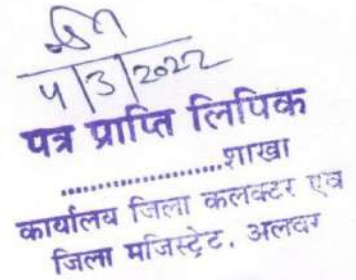 4/3/2022
पत्र प्राप्ति लिपिक
......................शाखा
कार्यालय जिला कलक्टर एव
जिला मजिस्ट्रेट, अलवर